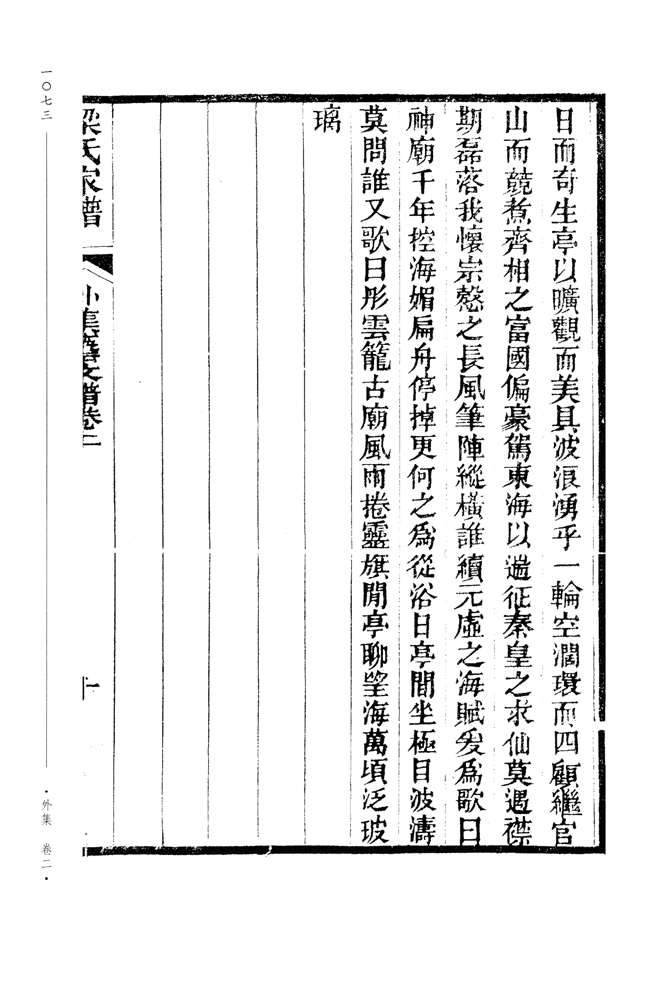 日而奇生亭以曠觀而美具波浪湧乎一輪空濶環而四顧繼官
山而競煮齊相之富國偏豪駕東海以遄征秦皇之求仙莫遇襟
期磊落我懷宗慤之長風筆陣縱橫誰續元虛之海賦爰爲歌曰
神廟千年控海媚扁舟停掉更何之爲從浴日亭間坐極目波濤
莫問誰又歌曰彤雲籠古廟風雨捲靈旗閒亭聊望海萬頃泛玻
璃
梁氏家譜
外集藝文譜卷二
十一
一〇七三
·外集 卷二·